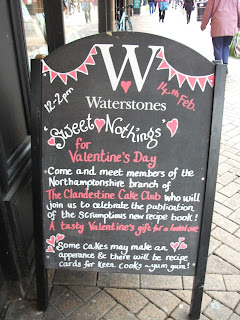 12-2pm
14th Feb.
W
Waterstones
"Sweet Nothings"
for
Valentine's Day
Come and meet members of the
Northamptonshire branch of
The Clandestine Cake Club who will
join us to celebrate the publication
of the scrumptious new recipe book!
A tasty Valentine's gift for a loved one
Some cakes may make an
apperance & there will be recipe
cards for keen cooks ~yum yum!